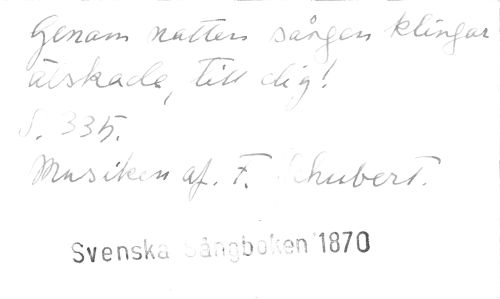 Genom natten sången klingar
älskade, till dig!
S. 335.
Musiken af. F. Schubert.
Svenska Sångboken 1870